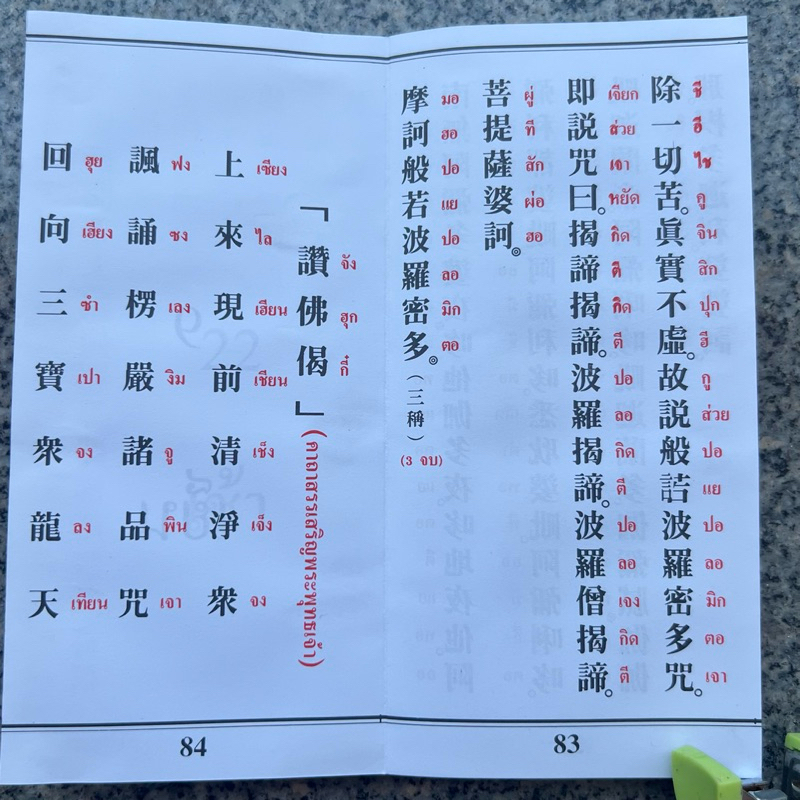 除一切苦。眞實不虛。故説般若波羅密多咒。
ชี อี ไช คู จิน สิก ปุก ฮี กู ส่วย ปอ แย ปอ ลอ มิก ตอ เจา
即説咒曰。揭諦揭諦。波羅揭諦。波羅僧揭諦。
เจียก ส่วย เจา หยัด กิด ตี กิด ตี ปอ ลอ กิด ตี ปอ ลอ เจง กิด ตี
菩提薩婆訶。
ผู่ ที สัก ผ่อ ฮอ
摩訶般若波羅密多。(三稱)
มอ ฮอ ปอ แย ปอ ลอ มิก ตอ (3 จบ)
83
「讚佛偈」(คาถาสรรเสริญพระพุทธเจ้า)
จัง ฮุก กี๋
上來現前清淨衆
เซียง ไล เฮียน เชียน เช็ง เจ็ง จง
諷誦楞嚴諸品咒
ฟง ซง เลง งิม จู พิน เจา
回向三寶衆龍天
ฮุย เฮียง ซำ เปา จง ลง เทียน
84